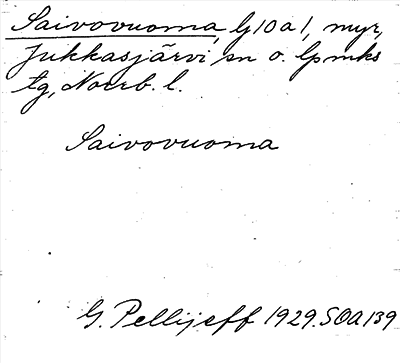 Saivovuoma, G10a1, myr,
Jukkasjärvi sn o. lpmks
tg, Norrb. l.
Saivovuoma
G. Pellijeff 1929. SOA 139